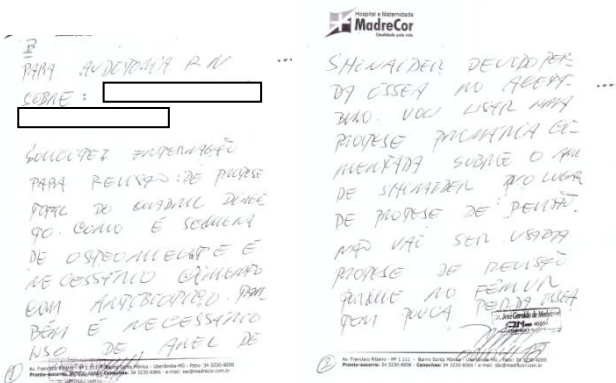 PARA AUDITORIA RN
SOBRE:
SOLICITEI INTERNAÇÃO
PARA REVISÃO: DE PROTESE
TOTAL DO QUADRIL DIREI-
TO. COMO É SEQUELA
DE OSTEOMIELITE É
NECESSÁRIO CIMENTO
COM ANTIBIOTICO. TAM-
BÉM É NECESSÁRIO
USO DE ANEL DE
Av. Francisco Ribeiro - Nº 1.111 - Bairro Santa Mônica - Uberlândia-MG - Pabx: 34 3230-6000
Pronto-socorro: Consultas: 34 3230-6060 - e-mail:
1
Hospital e Maternidade
MadreCor
Qualidade pela vida
SHINAIDER DEVIDO PER-
DA OSSEA NO ACETA-
BULO. VOU USAR UMA
PROTESE PRIMARIA CI-
MENTADA SOBRE O ANEL
DE SHINAIDER NO LUGAR
DE PROTESE DE REVISÃO.
NÃO VAI SER USADA
PROTESE DE REVISÃO
PORQUE NO FÊMUR
TEM POUCA PERDA OSSEA
Dr. José Geraldo de
2
Av. Francisco Ribeiro - Nº 1.111 - Bairro Santa Mônica - Uberlândia-MG - Pabx: 34 3230-6000
Pronto-socorro: Consultas: 34 3230-6060 - e-mail: